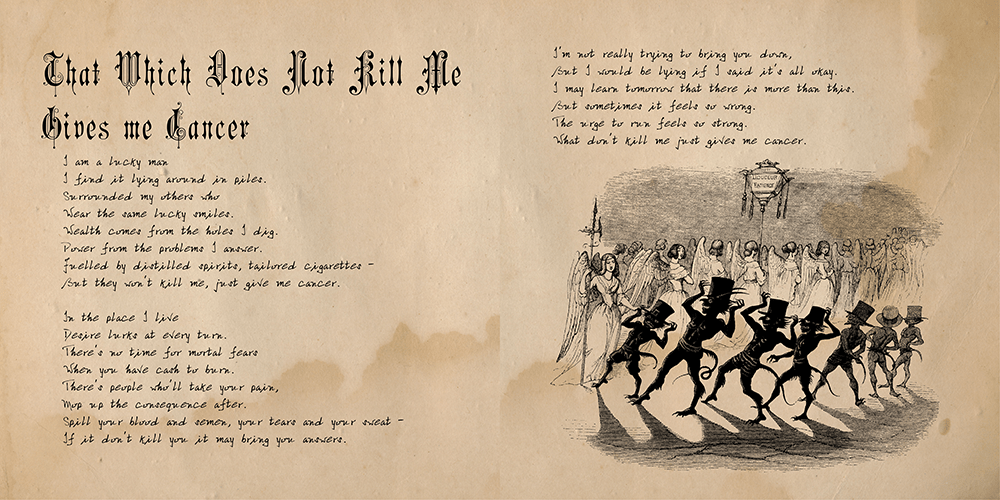 That Which Does Not Kill Me
Gives me Cancer
I am a lucky man
I find it lying around in piles.
Surrounded my others who
Wear the same lucky smiles.
Wealth comes from the holes I dig.
Power from the problems I answer.
Fuelled by distilled spirits, tailored cigarettes -
But they won't kill me, just give me cancer.
In the place I live
Desire lurks at every turn.
There's no time for mortal fears
When you have cash to burn.
There's people who'll take your pain,
Mop up the consequence after.
Spill your blood and semen, your tears and your sweat -
If it don't kill you it may bring you answers.
I'm not really trying to bring you down,
But I would be lying if I said it's all okay.
I may learn tomorrow that there is more than this.
But sometimes it feels so wrong.
The urge to run feels so strong.
What don't kill me just gives me cancer.